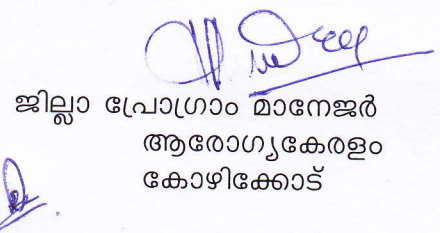 ജില്ലാ പ്രോഗ്രാം മാനേജർ
ആരോഗ്യകേരളം
കോഴിക്കോട്